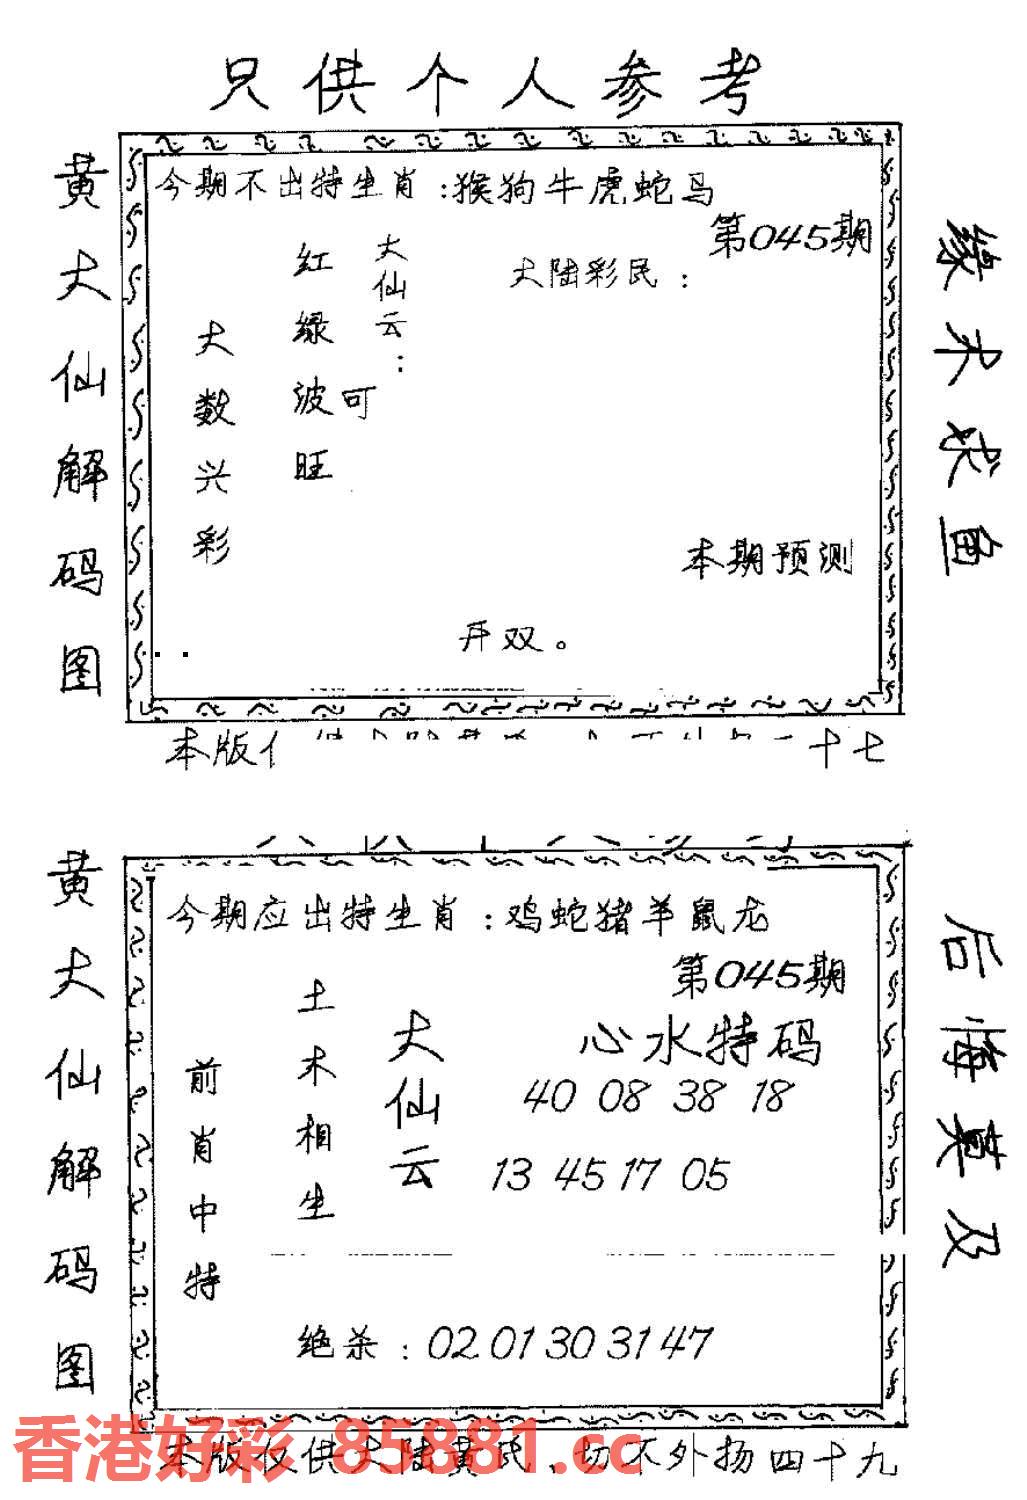 只供个人参考
黄大仙解码图
今期不出特生肖：猴狗牛虎蛇马
第045期
大陆彩民：
大仙云：
红绿波可旺
大数兴彩
本期预测
开双。
缘木求鱼
本版
十七
黄大仙解码图
今期应出特生肖：鸡蛇猪羊鼠龙
第045期
心水特码
40 08 38 18
13 45 17 05
大仙云
土木相生
前肖中特
绝杀：02 01 30 31 47
后悔莫及
本版仅供大陆黄氏、切不外扬四十九
香港好彩 85881.cc